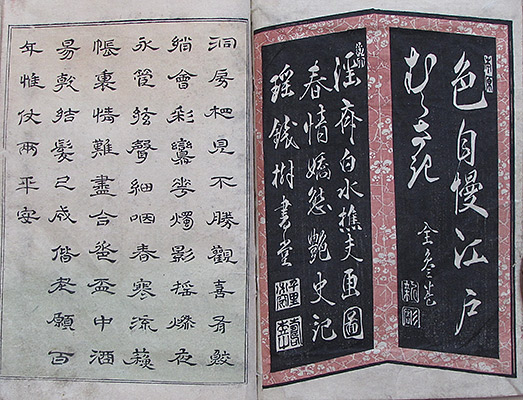 色自慢江戸
むらさき
全叁巻
淫斎白水樵夫画図
春情嬌態艶史記
瑶銭樹書堂
洞房 見不勝觀喜有鮫
綃會彩鸞花燭影揺 夜
永管絃聲細咽春寒流蘇
帳裏情難盡合巹盃中酒
易乾結髮已成偕老願百
年惟仗兩平安